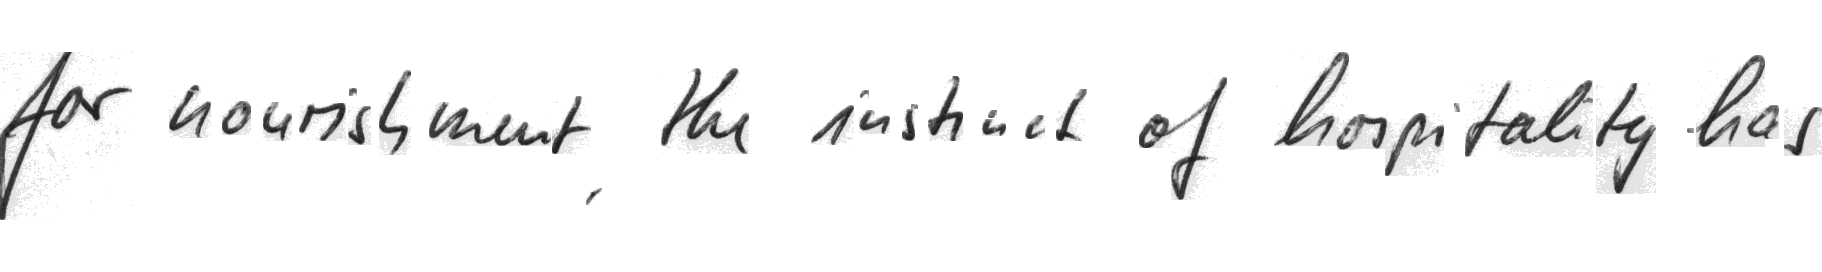 for nourishment, the instinct of hospitality has